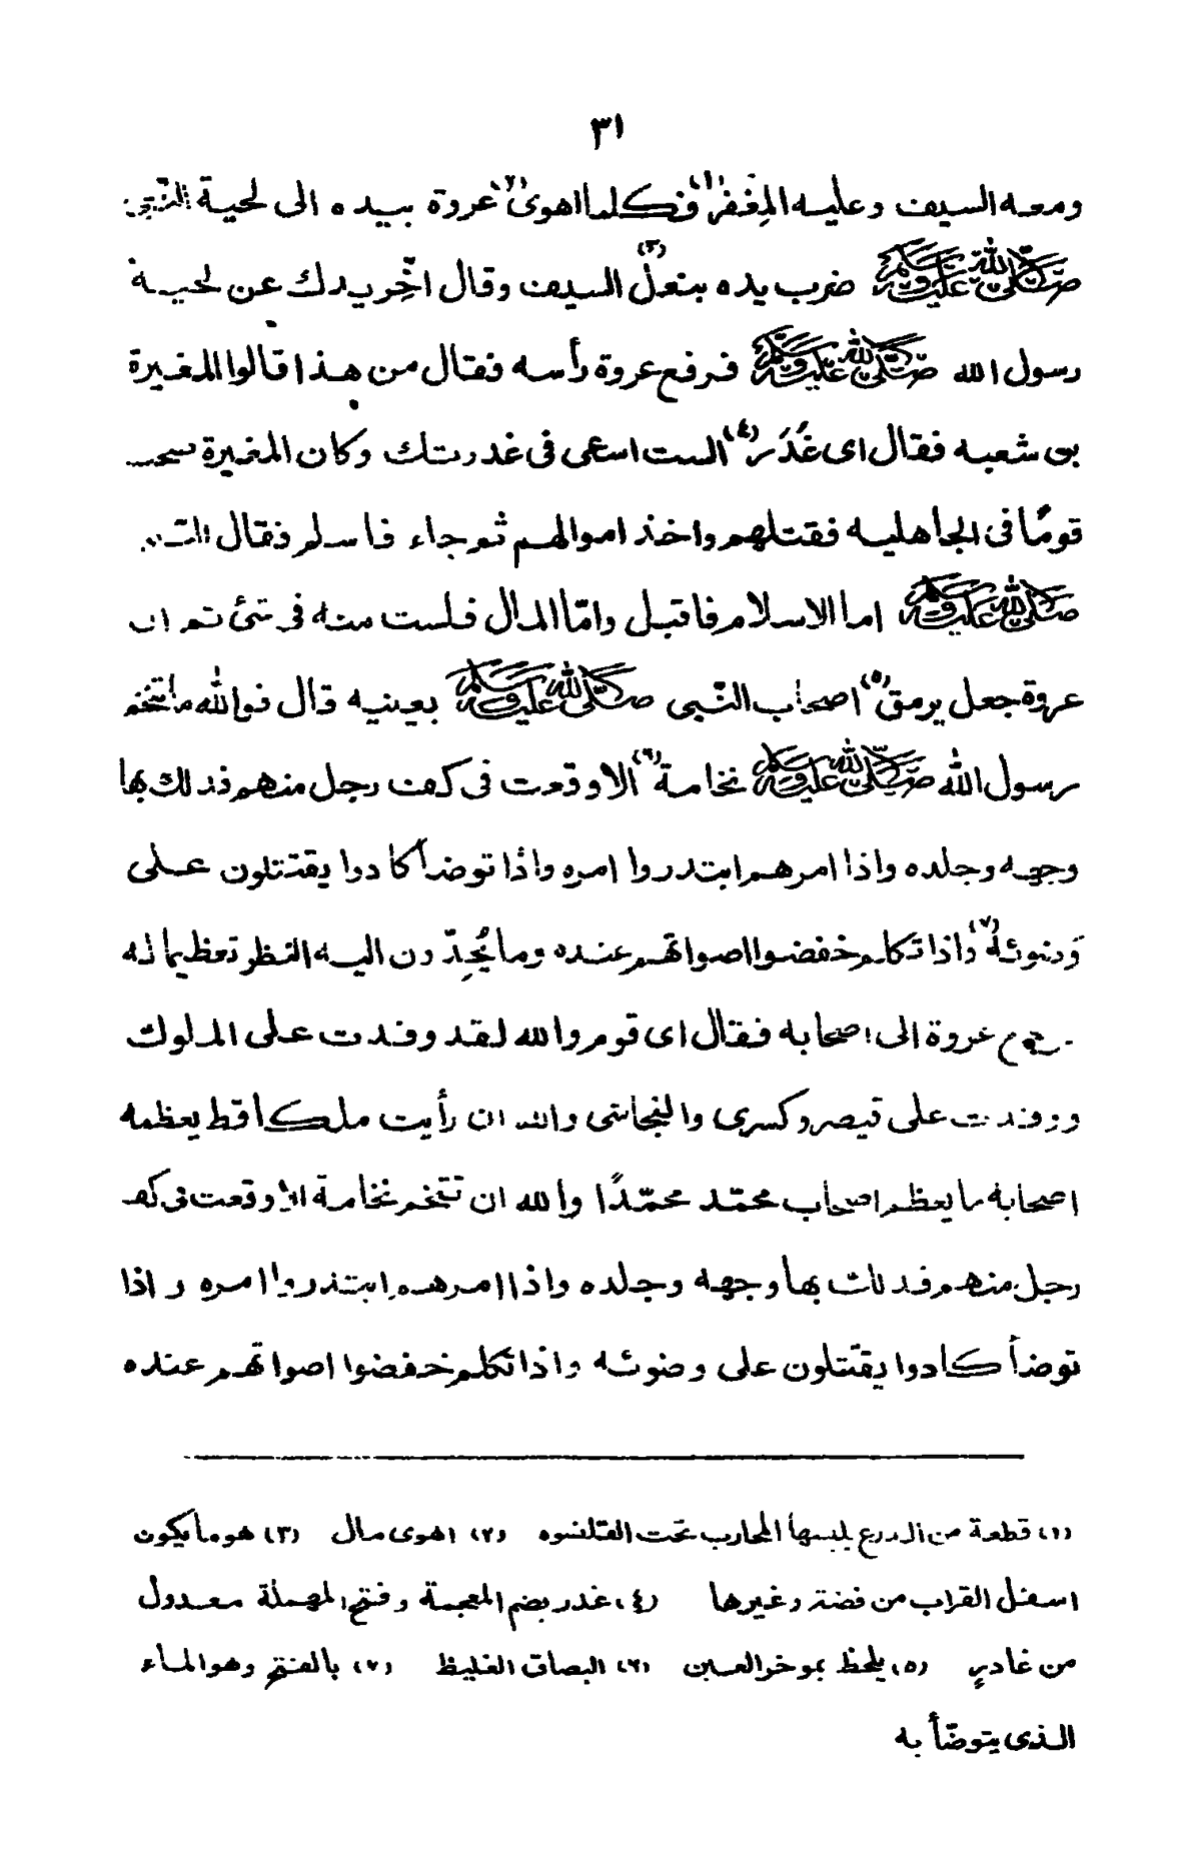 ٣١
ومعه السيف وعليه المِغْفَر(١) فكلما اهوى(٢) عروة بيده الى لحية النّبى
صَلَّى اللّٰهُ عَلَيْهِ وَسَلَّمَ ضرب يده بنعل(٣) السيف وقال اخِّر يدك عن لحية
رسول الله صَلَّى اللّٰهُ عَلَيْهِ وَسَلَّمَ فرفع عروة رأسه فقال من هذا قالوا المغيرة
بن شعبه فقال اى غُدَر(٤) الست اسعى فى غدرتك وكان المغيرة صحب
قومًا فى الجاهليه فقتلهم واخذ اموالهم ثم جاء فاسلم فقال النبى
صَلَّى اللّٰهُ عَلَيْهِ وَسَلَّمَ اما الاسلام فاقبل وامّا المال فلست منه فى شئ ثم ان
عروة جعل يرمق(٥) اصحاب النّبى صَلَّى اللّٰهُ عَلَيْهِ وَسَلَّمَ بعينيه قال فوالله ما تنخم
رسول الله صَلَّى اللّٰهُ عَلَيْهِ وَسَلَّمَ نخامة(٦) الا وقعت فى كف رجل منهم فدلك بها
وجهه وجلده واذا امرهم ابتدروا امره واذا توضأ كادوا يقتتلون على
وضوئه(٧) واذا تكلم خفضوا اصواتهم عنده وما يُحِدّون اليه النظر تعظيما له
فرجع عروة الى اصحابه فقال اى قوم والله لقد وفدت على الملوك
ووفدت على قيصر وكسرى والنجاشى والله ان رأيت ملكا قط يعظمه
اصحابه ما يعظم اصحاب محمّد محمّدًا والله ان تنخم نخامة الا وقعت فى كف
رجل منهم فدلك بها وجهه وجلده واذا امرهم ابتدروا امره واذا
توضأ كادوا يقتتلون على وضوئه واذا تكلم خفضوا اصواتهم عنده
(١) قطعة من الدرع يلبسها المحارب تحت القلنسوه (٢) اهوى مال (٣) هو مايكون
اسفل القراب من فضة وغيرها (٤) غدر بضم المعجمة وفتح المهملة معدول
من غادرٍ (٥) يلحظ بموخر العين (٦) البصاق الغليظ (٧) بالفتح وهو الماء
الذى يتوضّأ به